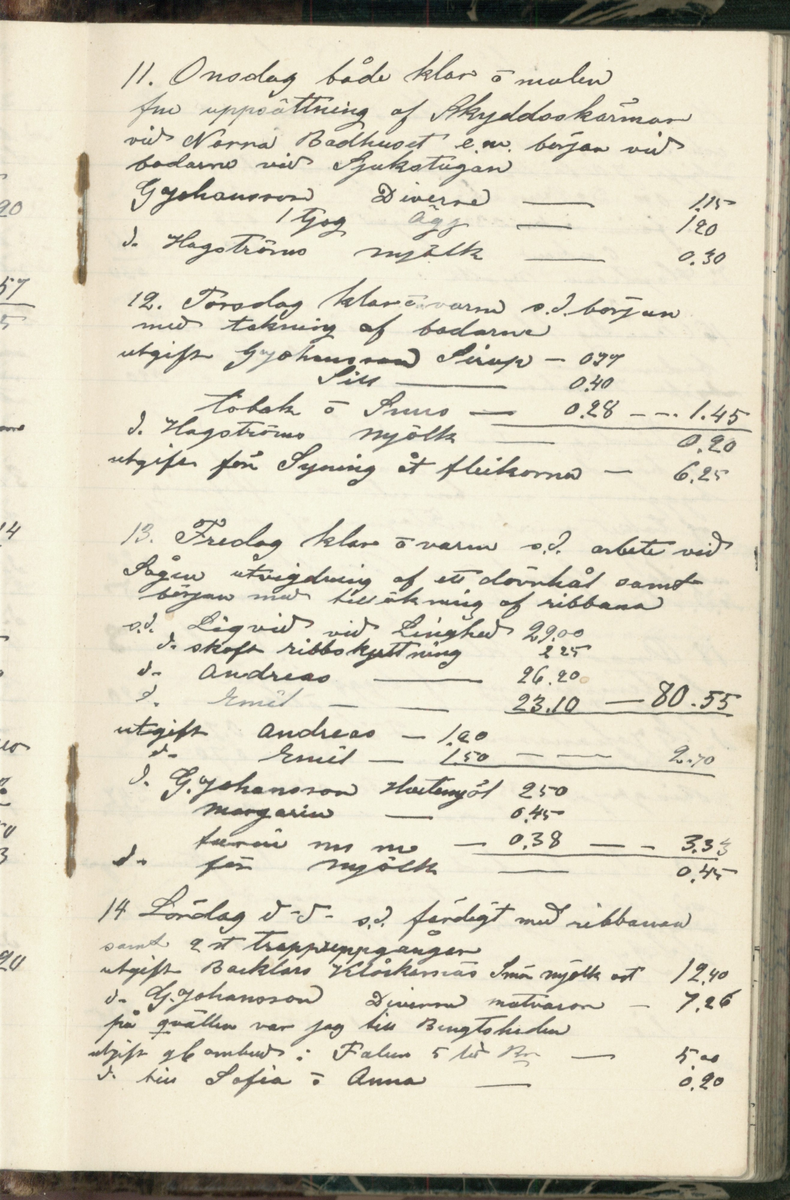 11. Onsdag både klar o mulen
för uppsättning af Skyddsskärmar
vid Norra Badhuset e.m. börjar vid
badarne vid Sjukstugan
G Johansson Diverse — 1.15
1 tjog ägg — 1.20
d. Hagströms mjölk — 0.30
12. Torsdag klar o varm s.d. början
med takning af badarne
utgift G Johansson Sirap — 077
Sill — 0.40
tobak o Snus — 0.28 — 1.45
d. Hagströms mjölk — 0.20
utgift för Syning åt flickorna — 6.25
13. Fredag klar o varm s.d. arbete vid
Sågen utvigdning af ett dörrhål samt
början med tillökning af ribbana
s.d. Liqvid vid Linghed 29.00
d. skoft ribbskjuttning 2 25
d. Andreas — 26.20
d. Emil — — 23.10 — 80.55
utgift Andreas — 1.20
d. Emil — 1.50 — — 2.70
d. G. Johansson Hvetemjöl 2 50
margarin — 0.45
m m — 0.38 — — 3.33
d. för mjölk — 0.45
14 Lördag d-d- s.d. färdigt med ribbanan
samt 2 st trappuppgångar
utgift Klockarnäs Smör mjölk ost 12.40
d. G. Johansson Diverse matvaror — 7.26
på qvällen var jag till Bengtsheden
utgift ombud i Falun 5 — 5.00
d. till Sofia o Anna — 0.20
20
57
5
14
20